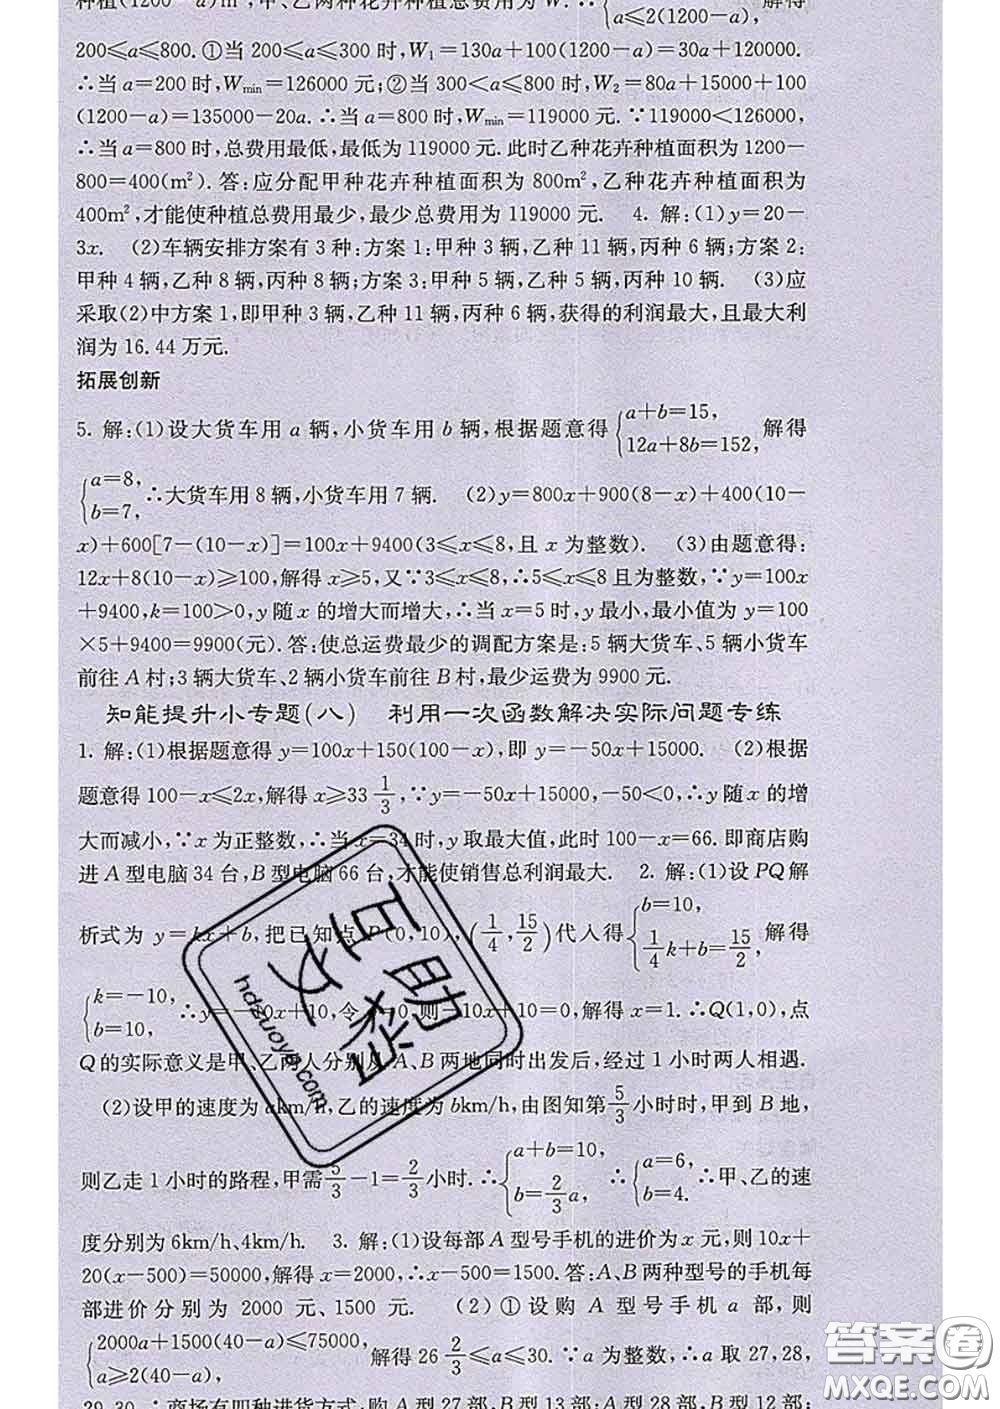 种植(1200-a)m²,甲、乙两种花卉种植总费用为 W. ∴{a≤2(1200-a), 解得
200≤a≤800. ①当 200≤a≤300 时,W₁=130a+100(1200-a)=30a+120000.
∴当 a=200 时,Wmin=126000 元;②当 300<a≤800 时,W₂=80a+15000+100
(1200-a)=135000-20a. ∴当 a=800 时,Wmin=119000 元. ∵119000<126000,
∴当 a=800 时,总费用最低,最低为 119000 元. 此时乙种花卉种植面积为 1200-
800=400(m²). 答:应分配甲种花卉种植面积为 800m²,乙种花卉种植面积为
400m²,才能使种植总费用最少,最少总费用为 119000 元. 4. 解:(1)y=20-
3x. (2)车辆安排方案有 3 种:方案 1:甲种 3 辆,乙种 11 辆,丙种 6 辆;方案 2:
甲种 4 辆,乙种 8 辆,丙种 8 辆;方案 3:甲种 5 辆,乙种 5 辆,丙种 10 辆. (3)应
采取(2)中方案 1,即甲种 3 辆,乙种 11 辆,丙种 6 辆,获得的利润最大,且最大利
润为 16.44 万元.
拓展创新
5. 解:(1)设大货车用 a 辆,小货车用 b 辆,根据题意得{a+b=15, 12a+8b=152, 解得
{a=8, b=7, ∴大货车用 8 辆,小货车用 7 辆. (2)y=800x+900(8-x)+400(10-
x)+600[7-(10-x)]=100x+9400(3≤x≤8,且 x 为整数). (3)由题意得:
12x+8(10-x)≥100,解得 x≥5,又∵3≤x≤8,∴5≤x≤8 且为整数,∵y=100x
+9400,k=100>0,y 随 x 的增大而增大,∴当 x=5 时,y 最小,最小值为 y=100
×5+9400=9900(元). 答:使总运费最少的调配方案是:5 辆大货车、5 辆小货车
前往 A 村;3 辆大货车、2 辆小货车前往 B 村,最少运费为 9900 元.
知能提升小专题(八) 利用一次函数解决实际问题专练
1. 解:(1)根据题意得 y=100x+150(100-x),即 y=-50x+15000. (2)根据
题意得 100-x≤2x,解得 x≥33 1/3,∵y=-50x+15000,-50<0,∴y 随 x 的增
大而减小,∵x 为正整数,∴当 x=34 时,y 取最大值,此时 100-x=66. 即商店购
进 A 型电脑 34 台,B 型电脑 66 台,才能使销售总利润最大. 2. 解:(1)设 PQ 解
析式为 y=kx+b,把已知点 P(0,10),(1/4,15/2)代入得{b=10, 1/4k+b=15/2, 解得
{k=-10, b=10, ∴y=-10x+10,令y=0,则-10x+10=0,解得 x=1. ∴Q(1,0),点
Q 的实际意义是甲、乙两人分别从 A、B 两地同时出发后,经过 1 小时两人相遇.
(2)设甲的速度为 akm/h,乙的速度为 bkm/h,由图知第 5/3 小时时,甲到 B 地,
则乙走 1 小时的路程,甲需 5/3-1=2/3 小时. ∴{a+b=10, b=2/3a, ∴{a=6, b=4. ∴甲、乙的速
度分别为 6km/h、4km/h. 3. 解:(1)设每部 A 型号手机的进价为 x 元,则 10x+
20(x-500)=50000,解得 x=2000,∴x-500=1500. 答:A、B 两种型号的手机每
部进价分别为 2000 元、1500 元. (2) ① 设购 A 型号手机 a 部,则
{2000a+1500(40-a)≤75000, a≥2(40-a), 解得 26 2/3≤a≤30. ∵a 为整数,∴a 取 27,28,
29,30. ∴商场有四种进货方式,购 A 型 27 部,B 型 13 部;A 型 28 部,B 型 12 部;
互助文档
hdzuoye.com
答案圈
MXQE.COM